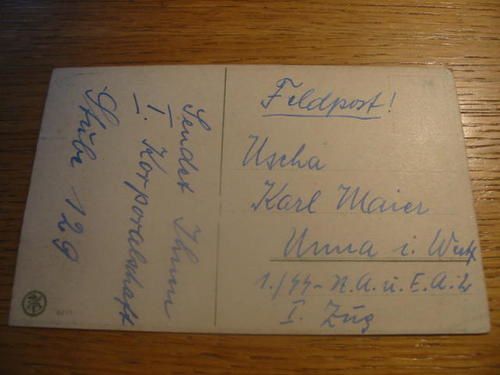 Sendet Ihnen
I. Korporalschaft
Stube 129
Feldpost!
Uscha
Karl Maier
Unna i. Westf
1./SS-N.A.u.E.A.2
I. Zug